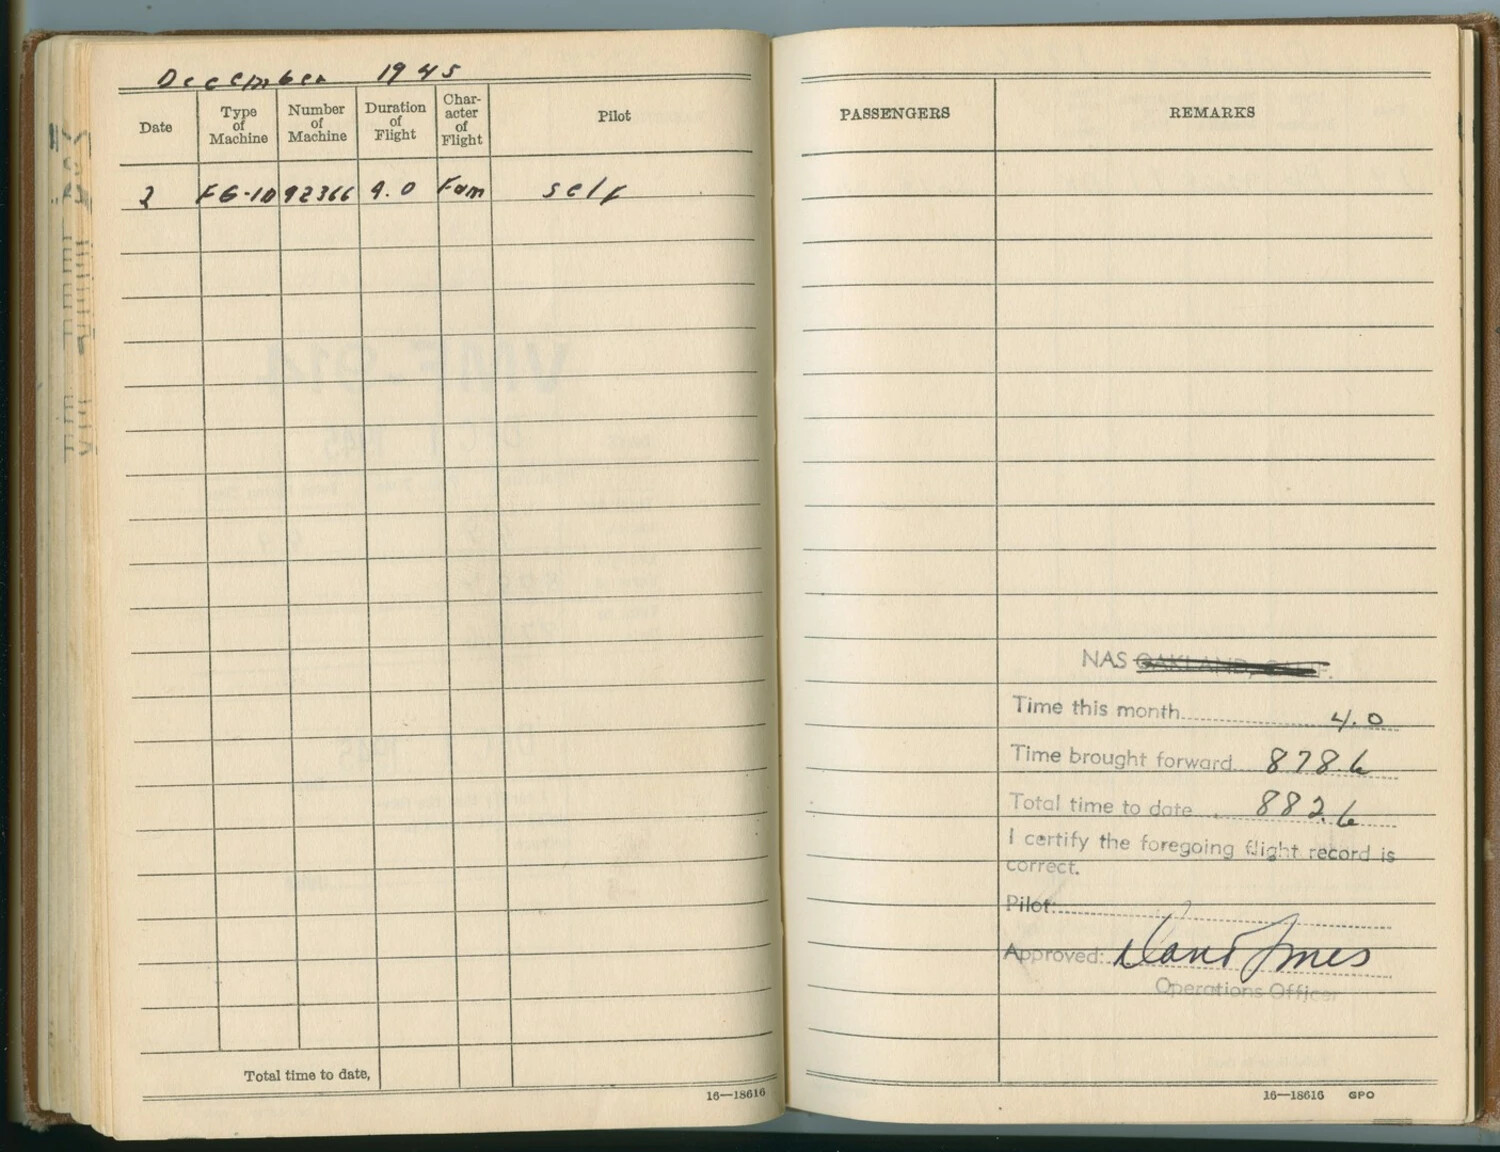 December 1945
Date Type of Machine Number of Machine Duration of Flight Char-acter of Flight Pilot
2 FG-1D 92366 4.0 Fam self
Total time to date,
16—18616
PASSENGERS REMARKS
NAS OAKLAND, CALIF.
Time this month 4.0
Time brought forward 878.6
Total time to date 882.6
I certify the foregoing flight record is
correct.
Pilot:
Approved:
Operations Officer
16—18616 GPO